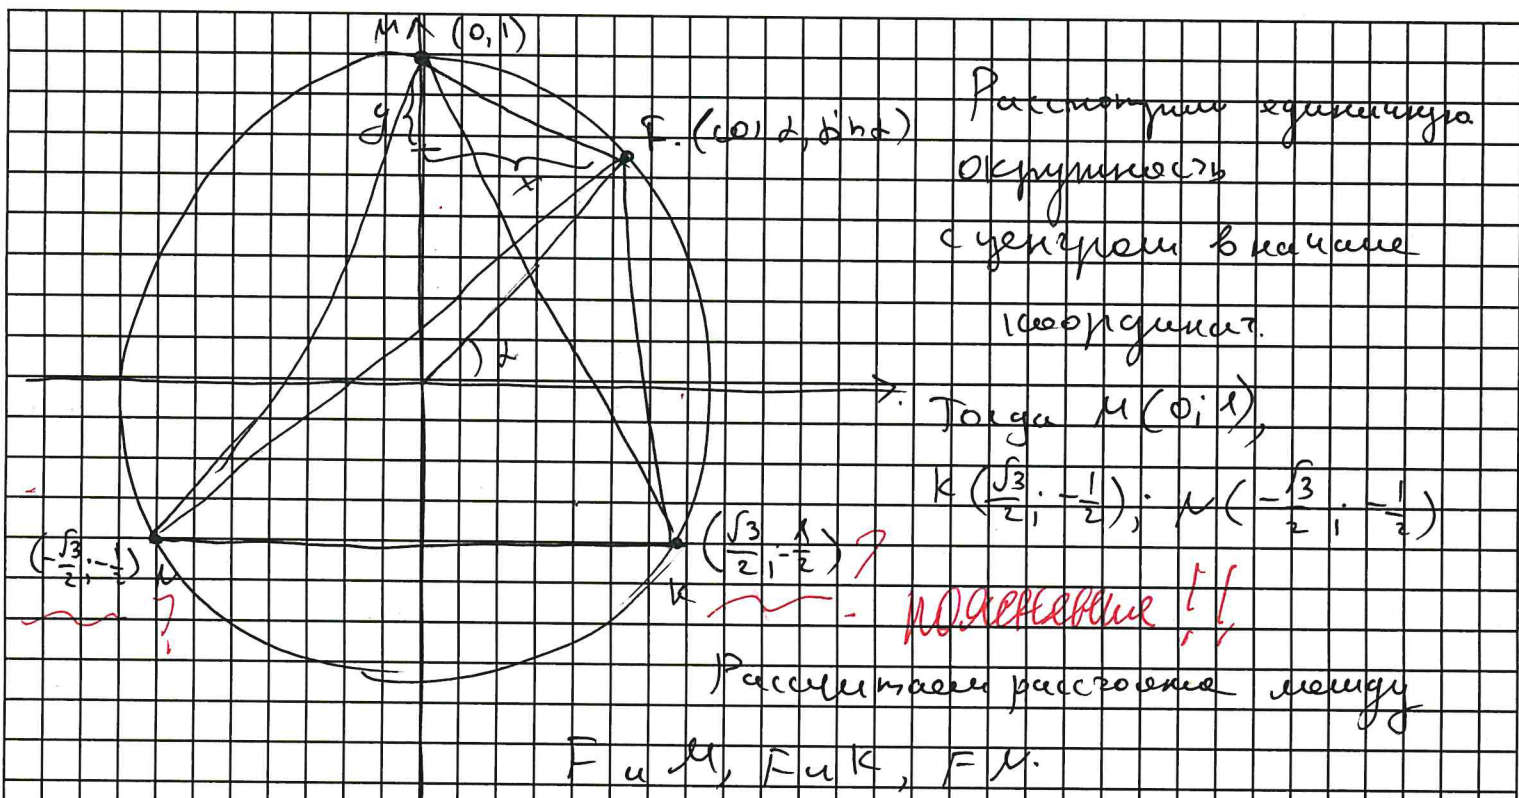 M (0,1)
y
x
F. (cos α, sin α)
α
(-√3/2; -1/2) N
?
(√3/2; -1/2) ?
K
Рассмотрим единичную
окружность
с центром в начале
координат.
Тогда M(0; 1),
K(√3/2; -1/2); N(-√3/2; -1/2)
пояснение !!
Рассчитаем расстояние между
F и M, F и K, FN.